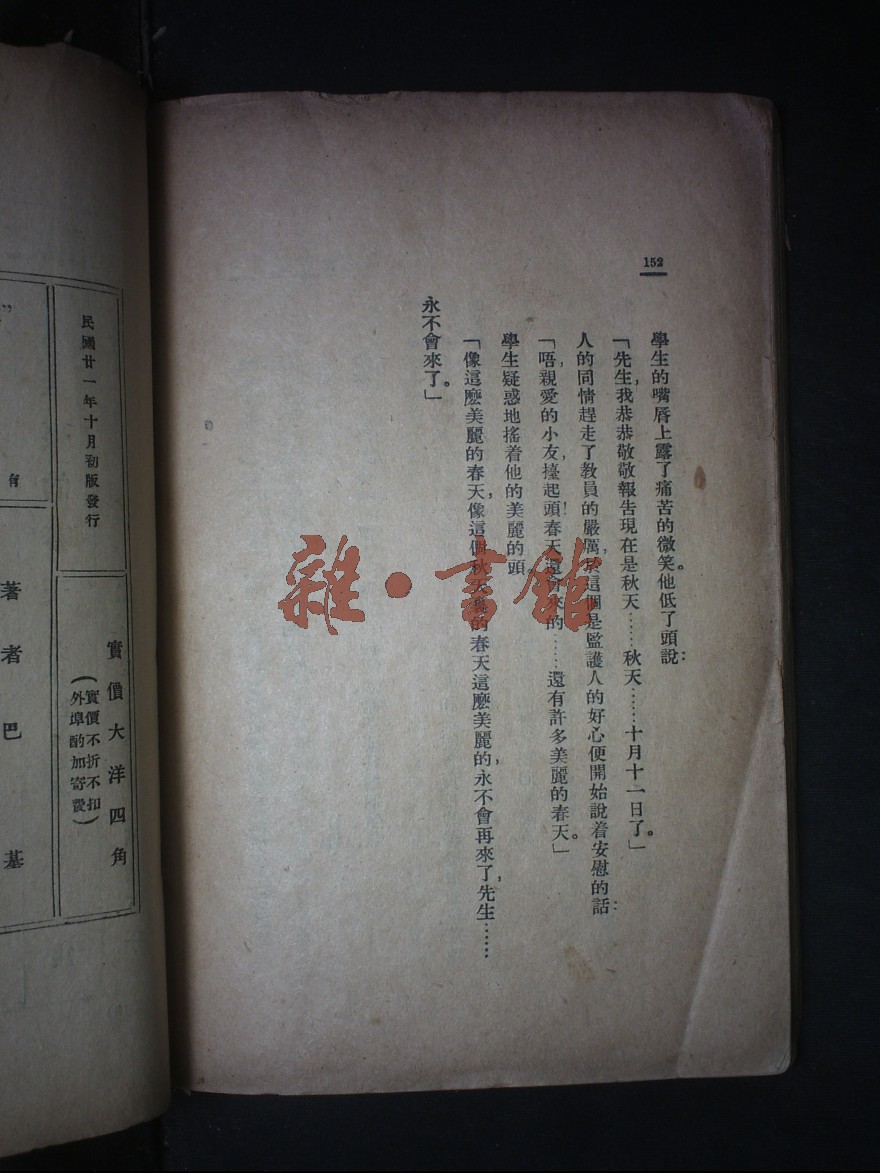 152
學生的嘴唇上露了痛苦的微笑。他低了頭說：
「先生，我恭恭敬敬報告現在是秋天……秋天……十月十一日了。」
人的同情趕走了教員的嚴厲，於這個是監護人的好心便開始說着安慰的話：
「唔，親愛的小友，擡起頭！春天還會來的……還有許多美麗的春天。」
學生疑惑地搖着他的美麗的頭。
「像這麽美麗的春天，像這個秋天的春天這麽美麗的，永不會再來了，先生……
永不會來了。」
雜·書館
民國廿一年十月初版發行
實價大洋四角
（實價不折不扣
外埠酌加寄費）
著者巴
基